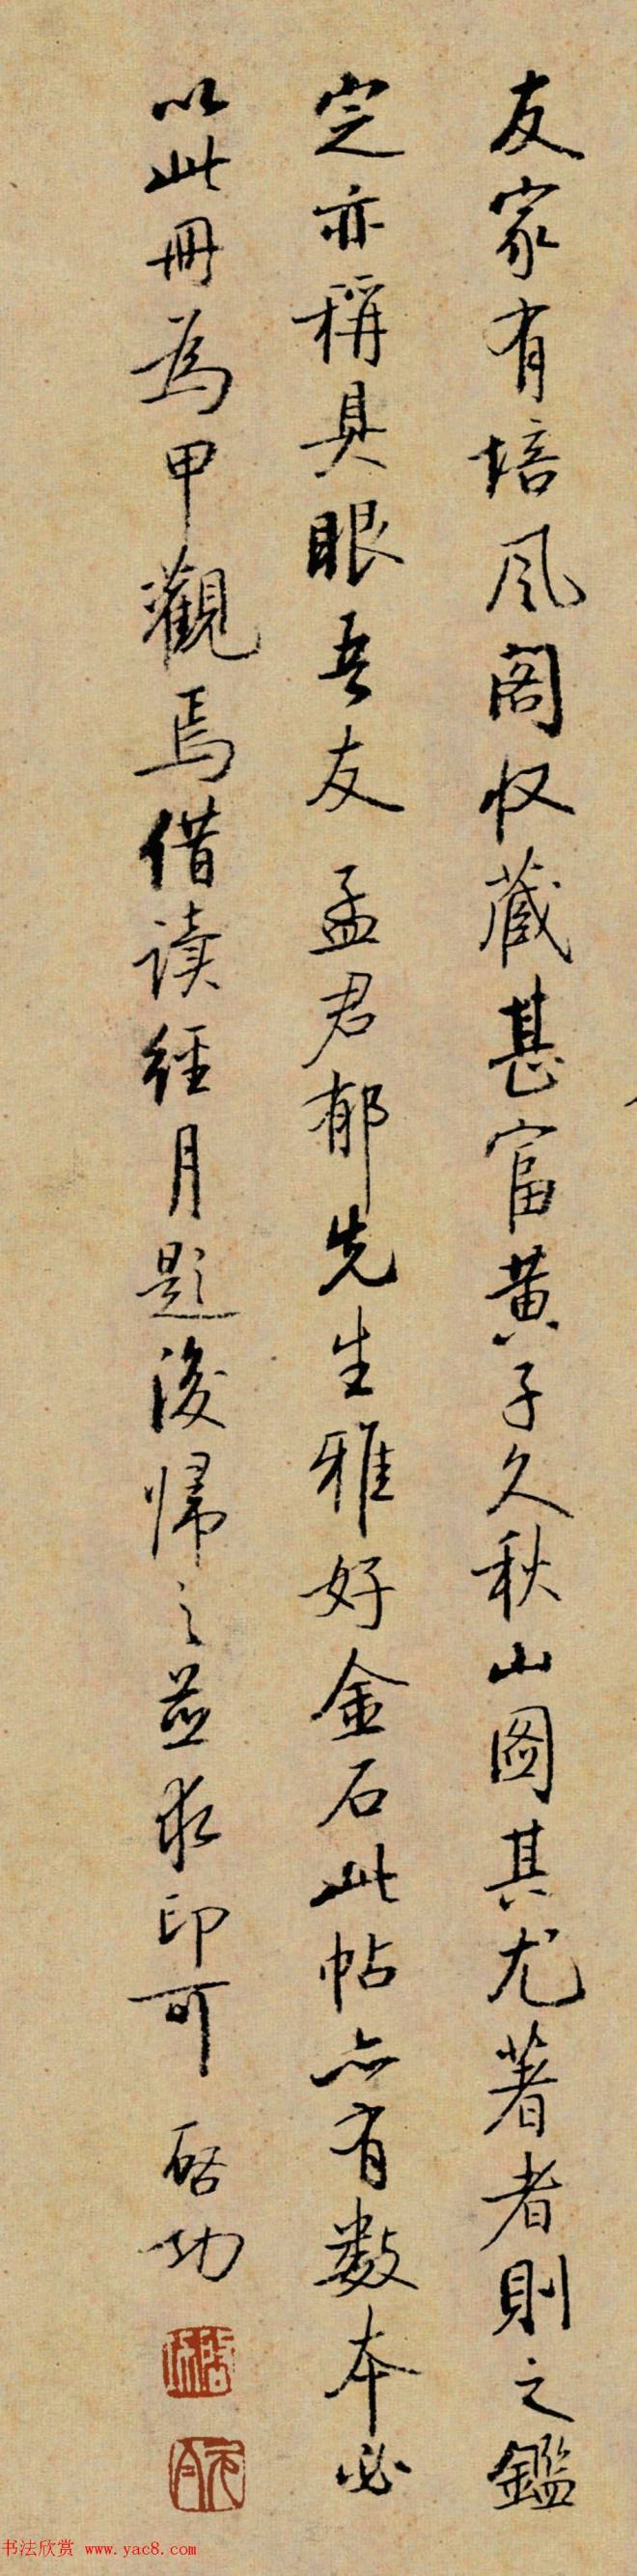 友家有培风阁收藏甚富黄子久秋山图其尤著者则之鑑
定亦稱具眼吾友孟君郁先生雅好金石此帖亦有数本必
以此册为甲觀焉借读经月题后归之并求印可
启功
书法欣赏 www.yac8.com